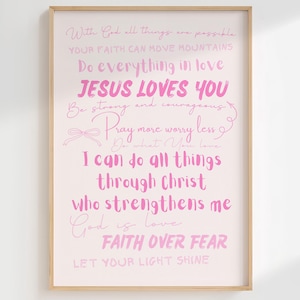 With God all things are possible
YOUR FAITH CAN MOVE MOUNTAINS
Do everything in love
JESUS LOVES YOU
Be strong and courageous
Pray more worry less
Do what You love
I can do all things
through Christ
who strengthens me
God is love
FAITH OVER FEAR
LET YOUR LIGHT SHINE